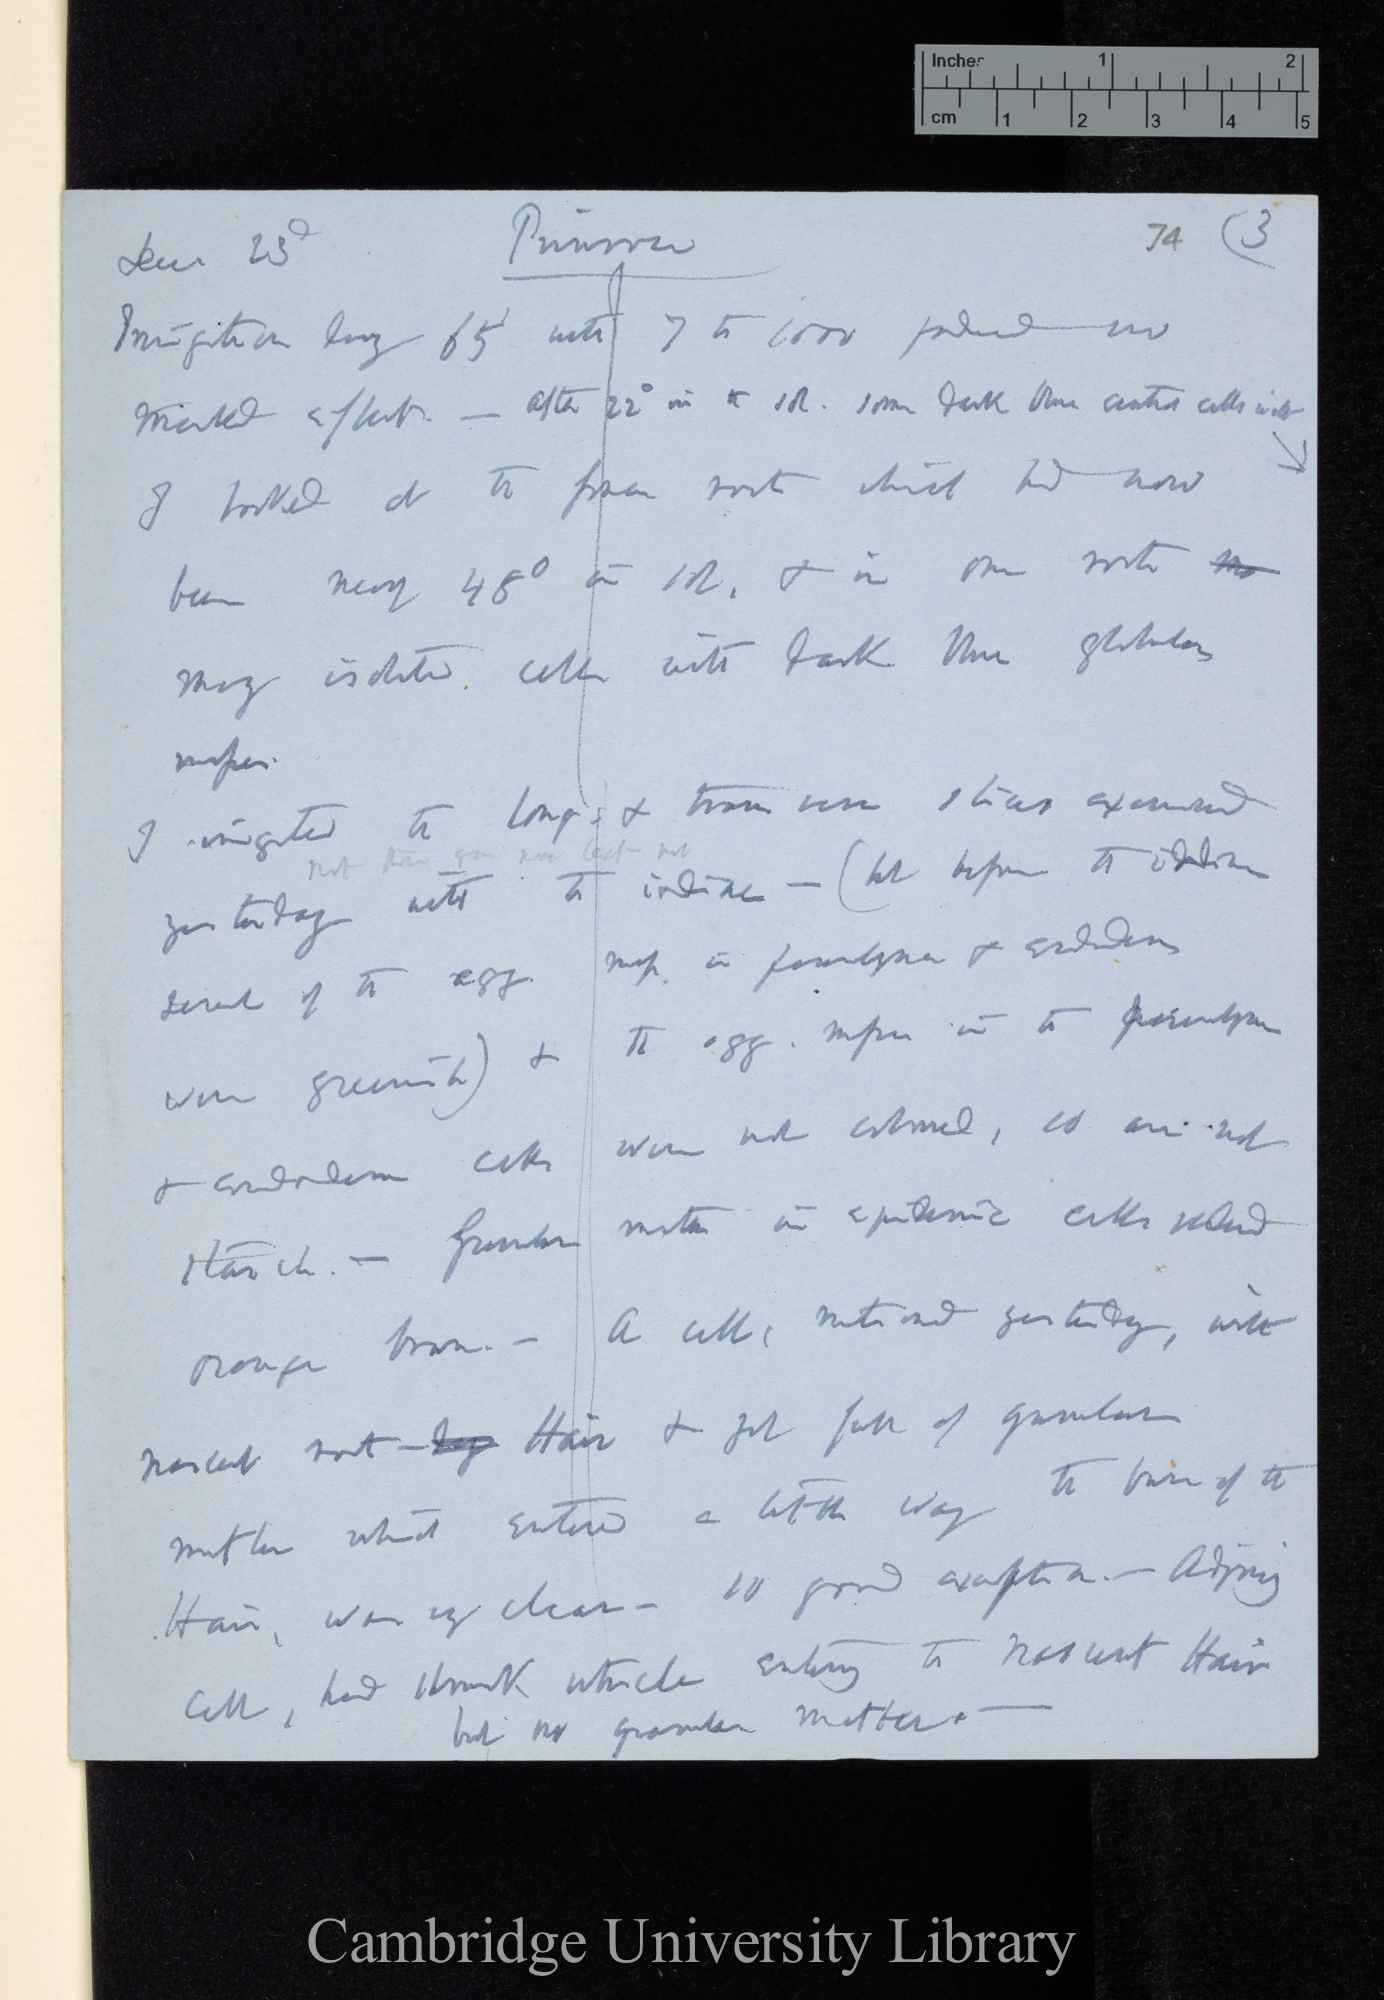 Inches 1 2
cm 1 2 3 4 5
Dec 23d Primrose 74 (3
Irrigation long 65' with 7 to 1000 produced no
marked effect. — After 22° in sol. some dark blue central cells with
I looked at the former roots which had now
been nearly 48° in sol, & in one root no
many isolated cells with dark blue globular
masses.
I irrigated the long. & transverse slices examined
not
yesterday with the iodine — (but before the iodine
several of the agg. mass in parenchyma & endoderm
were greenish) & the agg. masses in the parenchyma
& endoderm cells were not coloured, so are not
starch. — Granular matter in epidermic cells
orange brown. — A cell, noticed yesterday, with
nascent root- Hair & yet full of granular
matter which entered a little way the base of the
Hair, was very clear — so good exception. — Adjoining
cell, had shrunk utricle entering the nascent Hair
but no granular matter. —
Cambridge University Library